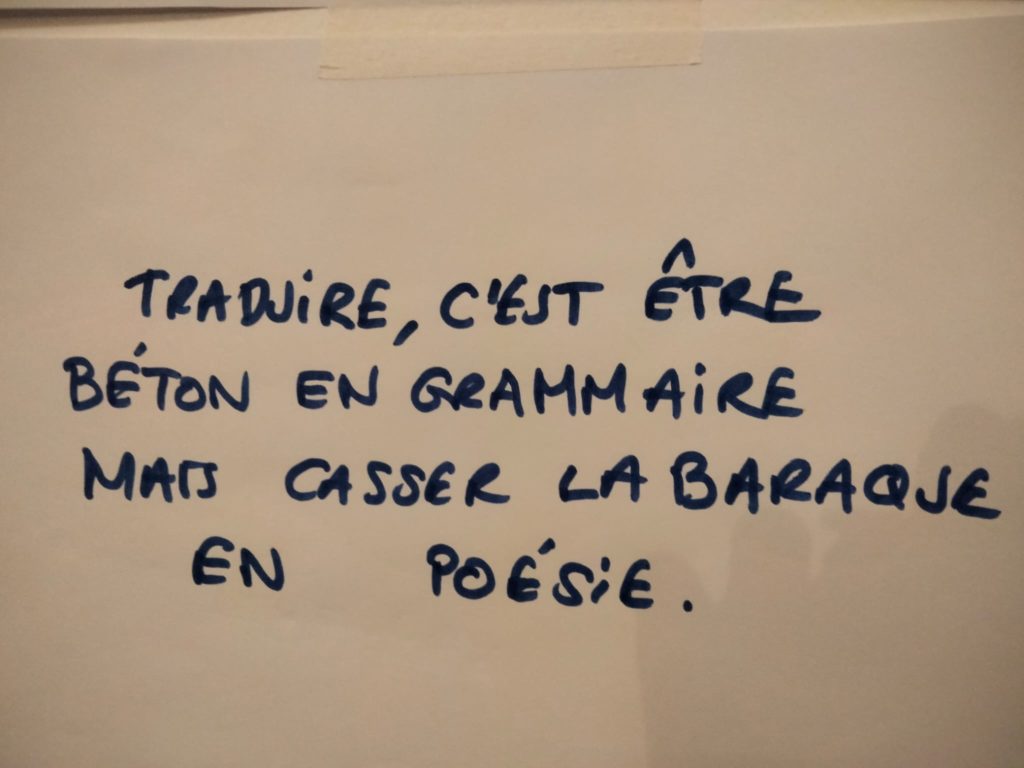 TRADUIRE, C'EST ÊTRE
BÉTON EN GRAMMAIRE
MAIS CASSER LA BARAQUE
EN POÉSIE.